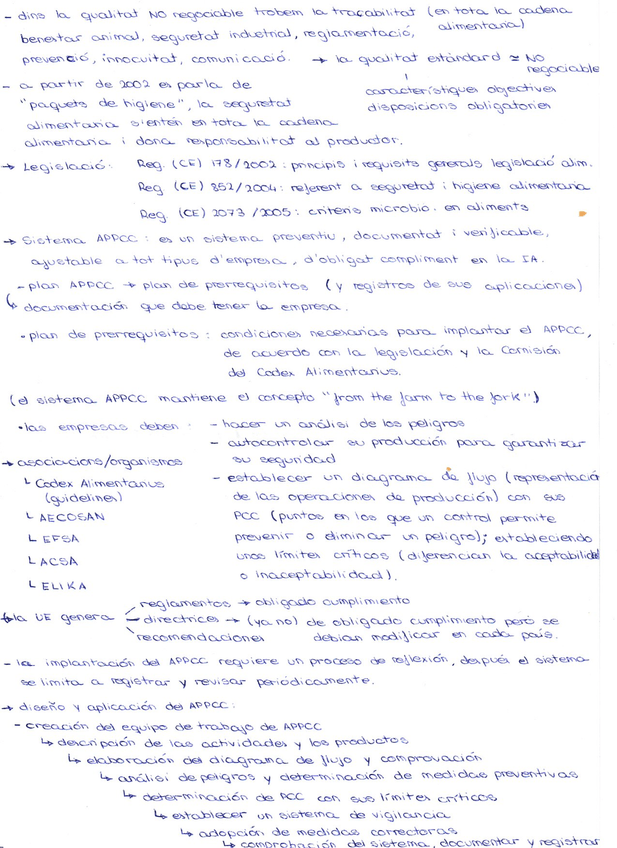 - dins la qualitat NO negociable trobem la traçabilitat (en tota la cadena alimentaria)
benestar animal, seguretat industrial, reglamentació,
prevenció, innocuitat, comunicació. → la qualitat estàndard ≃ NO negociable
característiques objectives
disposicions obligatories
- a partir de 2002 es parla de
"paquets de higiene", la seguretat
alimentaria s'entén en tota la cadena
alimentaria i dona responsabilitat al productor.
→ Legislació: Reg. (CE) 178/2002: principis i requisits generals legislació alim.
Reg (CE) 852/2004: referent a seguretat i higiene alimentaria
Reg. (CE) 2073/2005: criteris microbio. en aliments
→ Sistema APPCC: es un sistema preventiu, documentat i verificable,
ajustable a tot tipus d'empresa, d'obligat compliment en la IA.
- plan APPCC → plan de prerrequisitos (y registros de sus aplicaciones)
↳ documentación que debe tener la empresa.
• plan de prerrequisitos: condiciones necesarias para implantar el APPCC,
de acuerdo con la legislación y la Comisión
del Codex Alimentarius.
(el sistema APPCC mantiene el concepto "from the farm to the fork")
• las empresas deben: - hacer un análisi de los peligros
- autocontrolar su producción para garantizar
su seguridad
- establecer un diagrama de flujo (representació
de las operaciones de producción) con sus
PCC (puntos en los que un control permite
prevenir o eliminar un peligro); estableciendo
unos límites críticos (diferencian la aceptabilidad
o inaceptabilidad).
→ asociacions/organismos
└ Codex Alimentarius
(guidelines)
└ AECOSAN
└ EFSA
└ ACSA
└ ELIKA
reglamentos → obligado cumplimiento
→ la UE genera — directrices → (ya no) de obligado cumplimiento pero se
recomendaciones debian modificar en cada país.
- la implantación del APPCC requiere un proceso de reflexión, después el sistema
se limita a registrar y revisar periódicamente.
→ diseño y aplicación del APPCC:
- creación del equipo de trabajo de APPCC
↳ descripción de las actividades y los productos
↳ elaboración del diagrama de flujo y comprovación
↳ análisi de peligros y determinación de medidas preventivas
↳ determinación de PCC con sus límites críticos
↳ establecer un sistema de vigilancia
↳ adopción de medidas correctoras
↳ comprobación del sistema, documentar y registrar